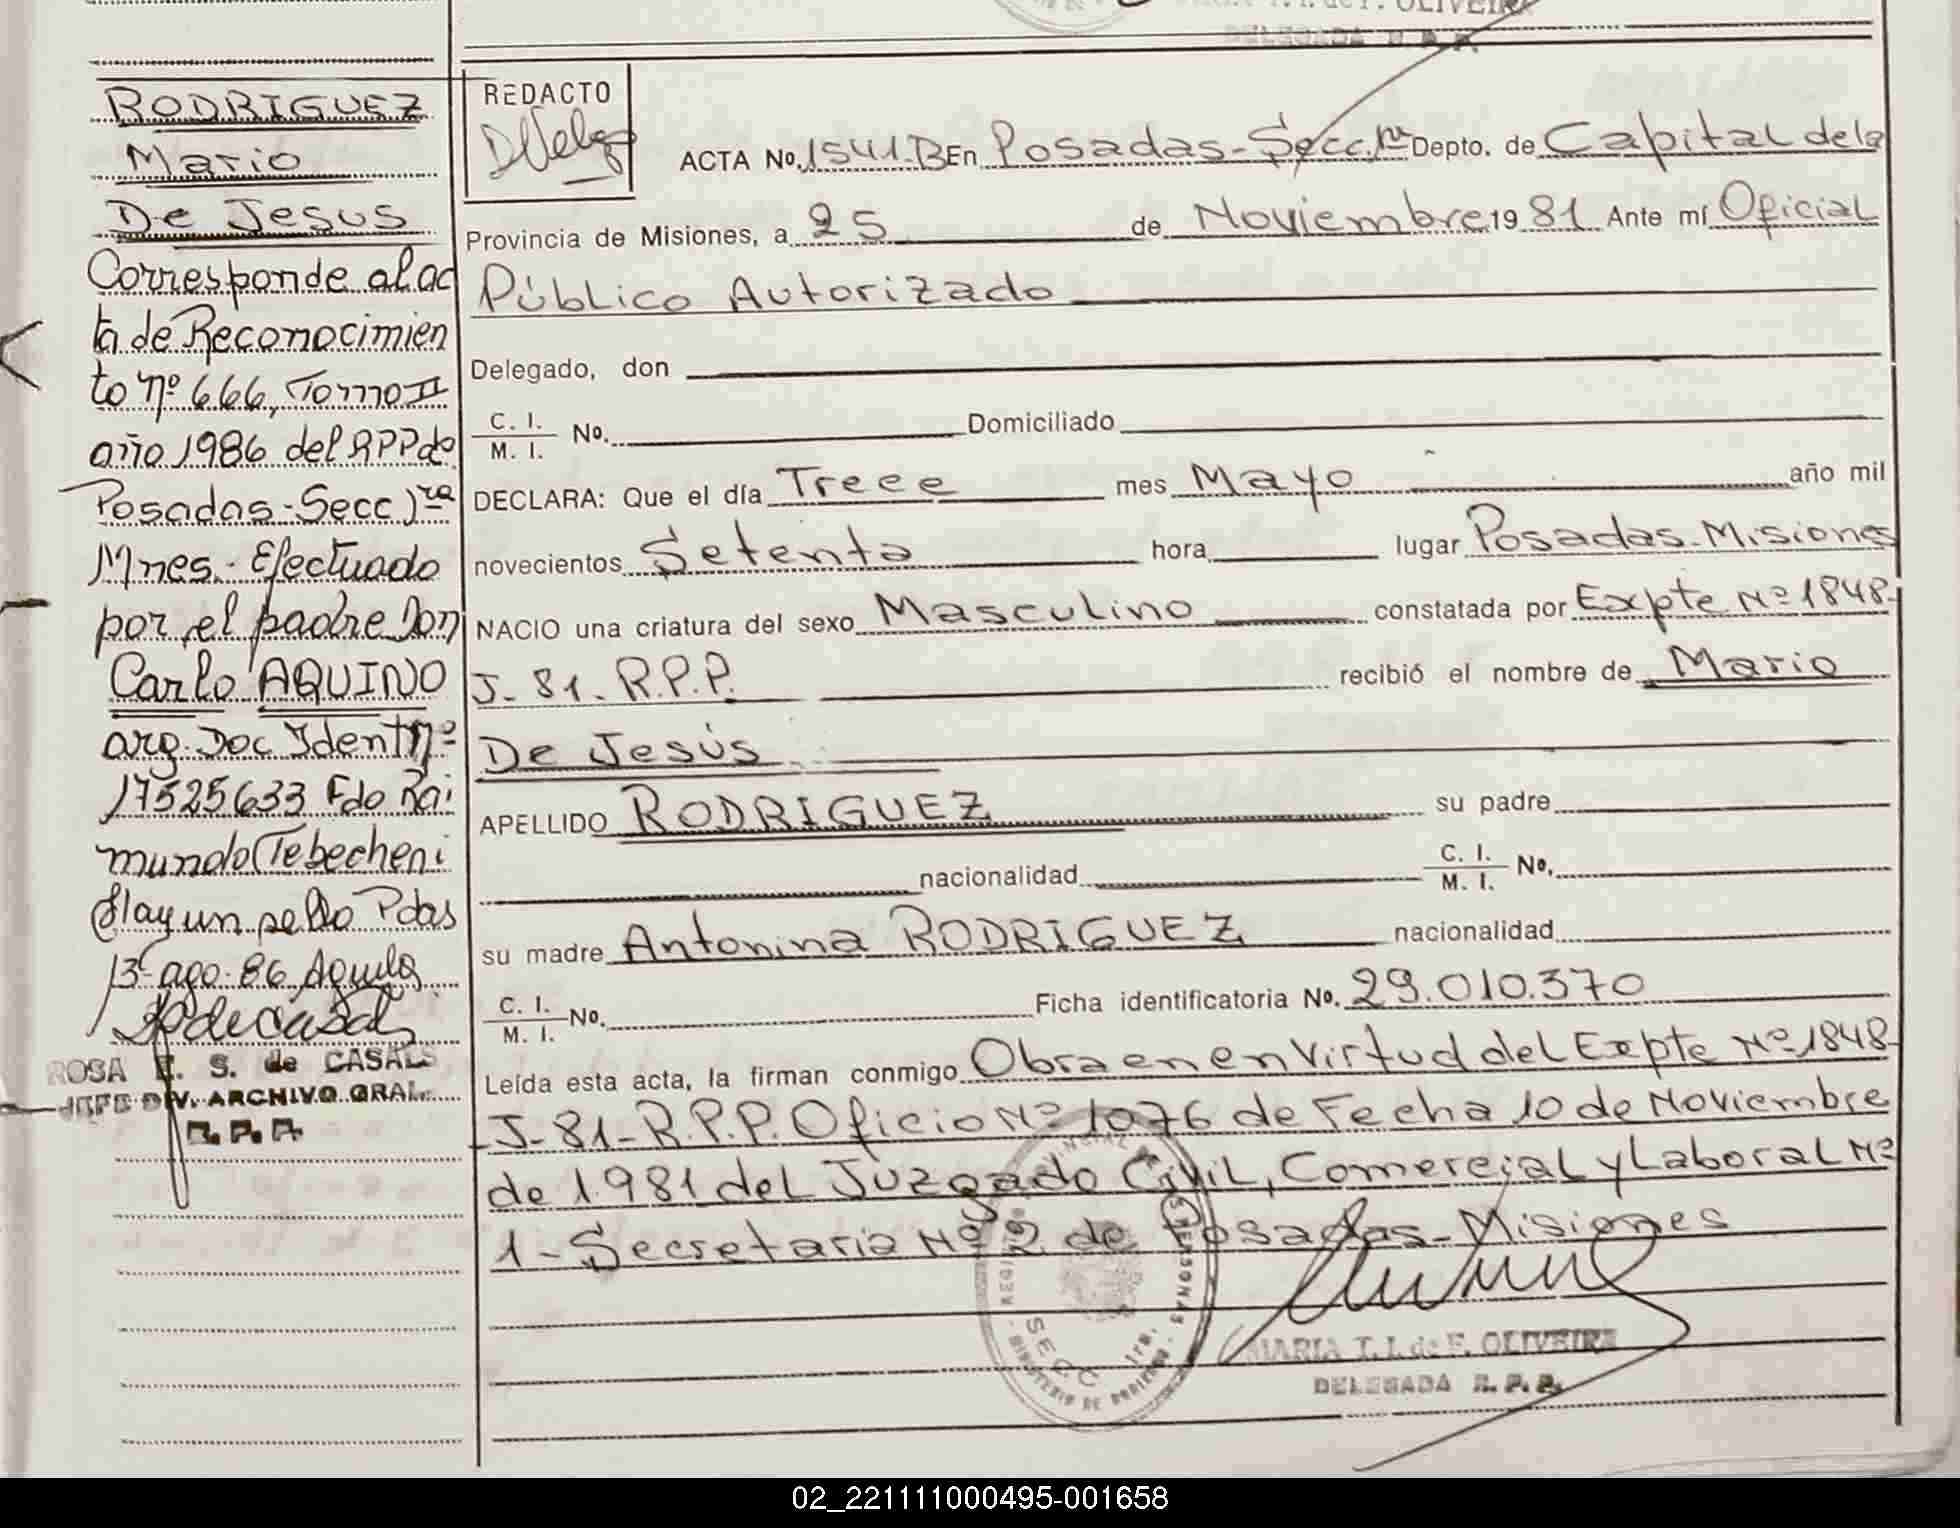 OLIVEIRA
DELEGADA R. P. P.
RODRIGUEZ
Mario
De Jesus
Corresponde al ac
ta de Reconocimien
to nº 666, Tomo II
año 1986 del RPP de
Posadas-Secc 1ra
Mnes.- Efectuado
por el padre Don
Carlo AQUINO
arg. Doc Ident Nº
17525633 Fdo Rai
mundo Tebecheni
Hay un sello Pdas
13 ago. 86
ROSA E. S. de CASALS
JEFE DIV. ARCHIVO GRAL.
R. P. P.
REDACTO
ACTA No. 1541.B En Posadas-Secc. 1ra Depto. de Capital de la
Provincia de Misiones, a 25 de Noviembre 19 81 Ante mí Oficial
Público Autorizado
Delegado, don
C. I.
M. I. No. Domiciliado
DECLARA: Que el día Trece mes Mayo año mil
novecientos Setenta hora lugar Posadas-Misiones
NACIO una criatura del sexo Masculino constatada por Expte Nº 1848-
J-81-R.P.P. recibió el nombre de Mario
De Jesús
APELLIDO RODRIGUEZ su padre
nacionalidad C. I.
M. I. No.
su madre Antonina RODRIGUEZ nacionalidad
C. I.
M. I. No. Ficha identificatoria No. 29.010.370
Leída esta acta, la firman conmigo Obra en en Virtud del Expte Nº 1848-
J-81-R.P.P. Oficio Nº 1076 de Fecha 10 de Noviembre
de 1981 del Juzgado Civil, Comercial y Laboral Nº
1-Secretaria Nº 2 de Posadas-Misiones
SECC. 1ra.
MARIA T. I. de F. OLIVEIRA
DELEGADA R. P. P.
02_221111000495-001658